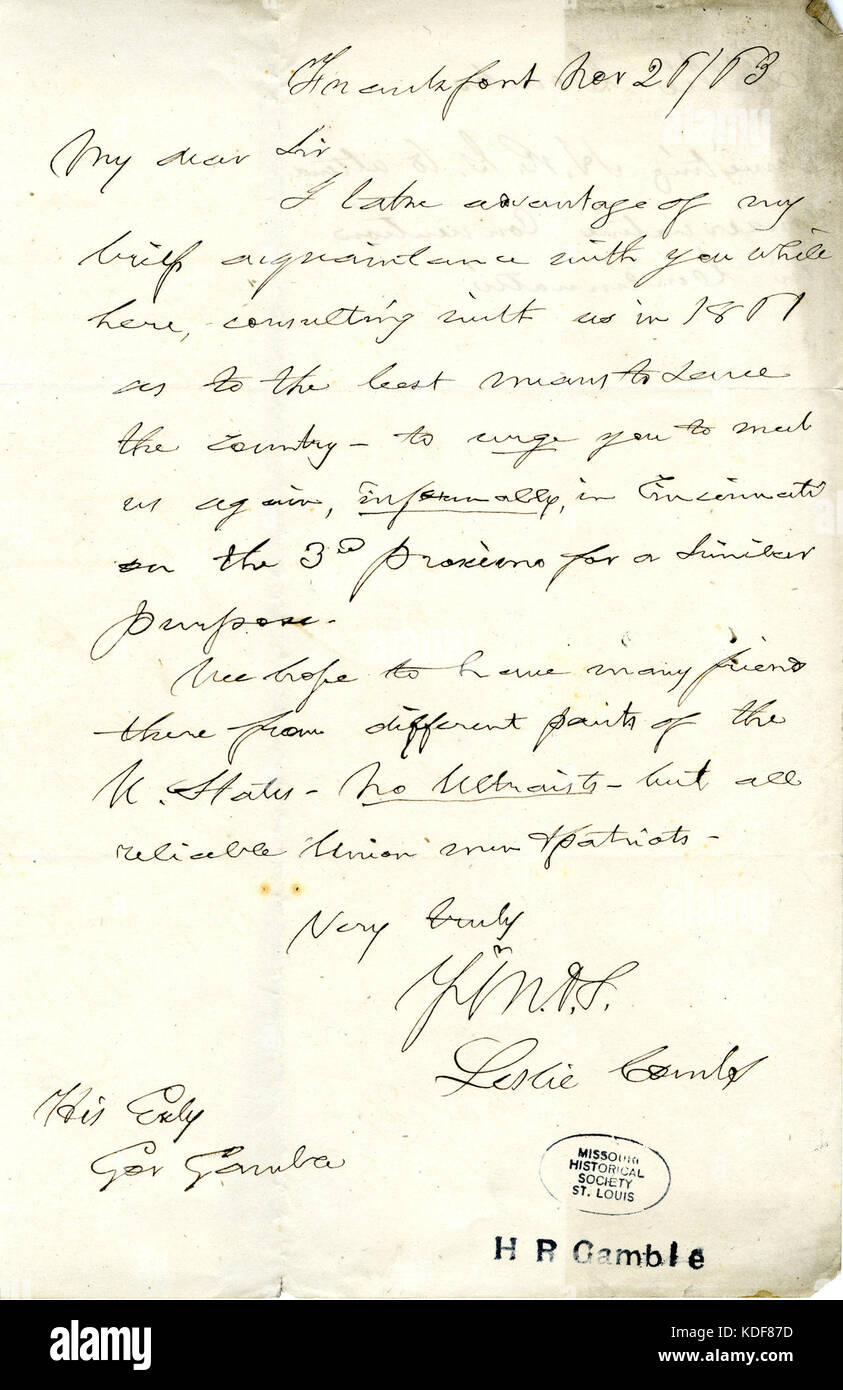 Frankfort Nov 21/63
My dear Sir
I take advantage of my
brief acquaintance with you while
here, consulting with us in 1861
as to the best means to save
the country - to urge you to meet
us again, informally, in Cincinnati
on the 3rd proximo for a similar
purpose.
We hope to have many friends
there from different parts of the
U. States - No Ultraists - but all
reliable Union men & patriots -
Very truly
Leslie Combs
His Exly
Gov Gamble
MISSOURI
HISTORICAL
SOCIETY
ST. LOUIS
H R Gamble
alamy stock photo
KDF87D
www.alamy.com